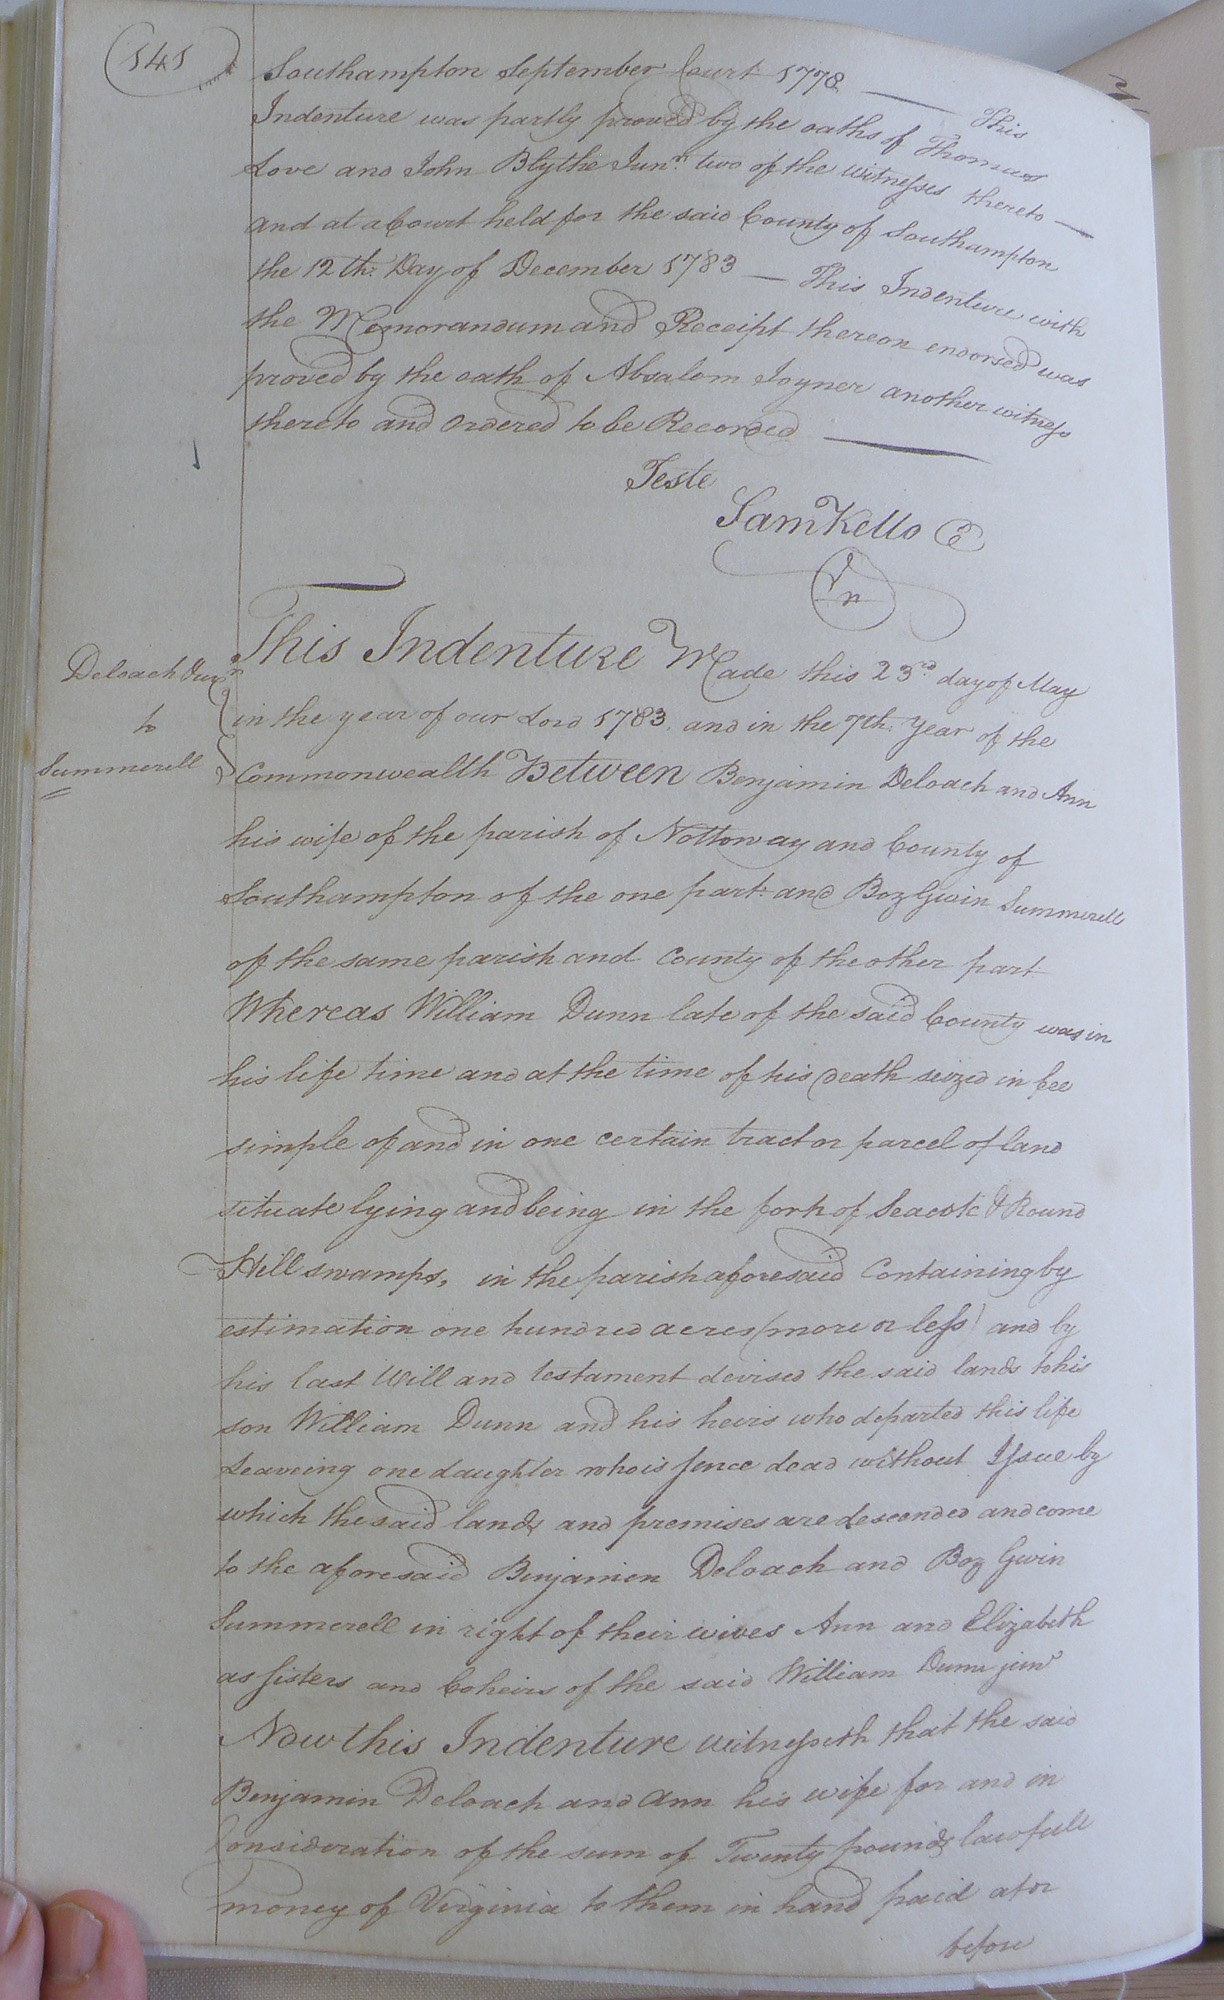 141
Southampton September Court 1778 — This
Indenture was partly proved by the oaths of Thomas
Love and John Blythe Junr. two of the witnesses thereto —
and at a Court held for the said County of Southampton
the 12th: Day of December 1783 — This Indenture with
the Memorandum and Receipt thereon endorsed was
proved by the oath of Absalom Joyner another witness
thereto and Ordered to be Recorded —
Teste
Sam Kello C
Deloach &ux
to
Summerell
This Indenture Made this 23rd day of May
in the year of our Lord 1783, and in the 7th: Year of the
Commonwealth Between Benjamin Deloach and Ann
his wife of the parish of Nottoway and County of
Southampton of the one part: and Boz Gwin Summerell
of the same parish and County of the other part
Whereas William Dunn late of the said County was in
his life time and at the time of his death seized in fee
simple of and in one certain tract or parcel of land
situate lying and being in the fork of Seacock & Round
Hill swamps, in the parish aforesaid Containing by
estimation one hundred acres (more or less) and by
his last Will and testament devised the said lands to his
son William Dunn and his heirs who departed this life
Leaveing one daughter who is sence dead without Issue by
which the said lands and premises are descended and come
to the aforesaid Benjamin Deloach and Boz Gwin
Summerell in right of their wives Ann and Elizabeth
as sisters and Coheirs of the said William Dunn junr
Now this Indenture witnesseth that the said
Benjamin Deloach and Ann his wife for and in
Consideration of the sum of Twenty pounds lawfull
money of Virginia to them in hand paid at or
before